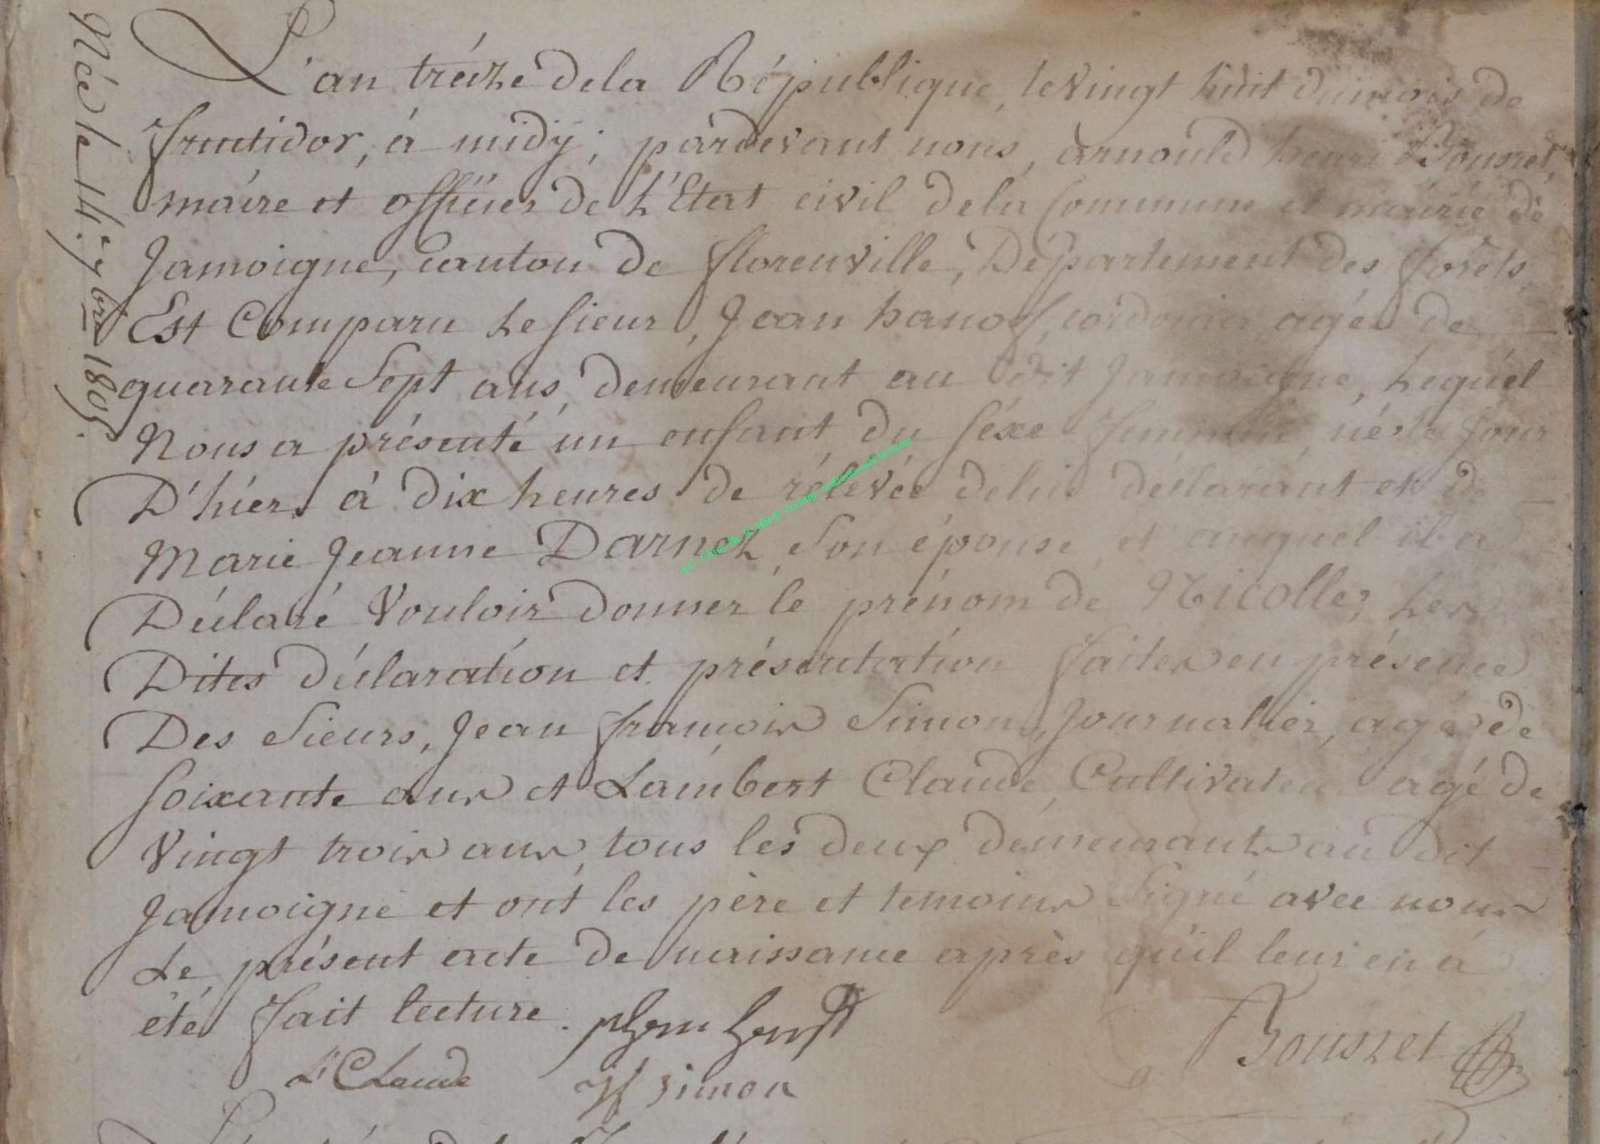 Née le 14. 7bre 1805.
L'an tréize dela République, le vingt huit du mois de
fructidor, à midÿ; pardevant nous, arnould henri Bouszet,
maire et officier de L'Etat civil dela Commune et mairie de
Jamoigne, canton de florenville, Département des forêts,
Est Comparu Le sieur, Jean hanoff, cordonier agée de
quarante Sept ans, demeurant au dit Jamoigne, Lequél
Nous a présenté un enfant du séxe feminin, née le jour
D'hier, à dix heures de rélevée delui déclarant et de
Marie Jeanne Darnez, Son épouse et auquel il a
Déclaré Vouloir donner le prénom de Nicolle, Les
Dites déclaration et présentation faites en présence
Des Sieurs, Jean françois Simon, Journalier, agé de
soixante ans et Lambert Claude, Cultivateur agé de
Vingt trois ans, tous les deux demeurants au dit
Jamoigne et ont les père et temoins Signé avec nous
Le présent acte de naissance après qu'il leur en à
été fait lecture.
Bouszet
L Claude
Jf simon